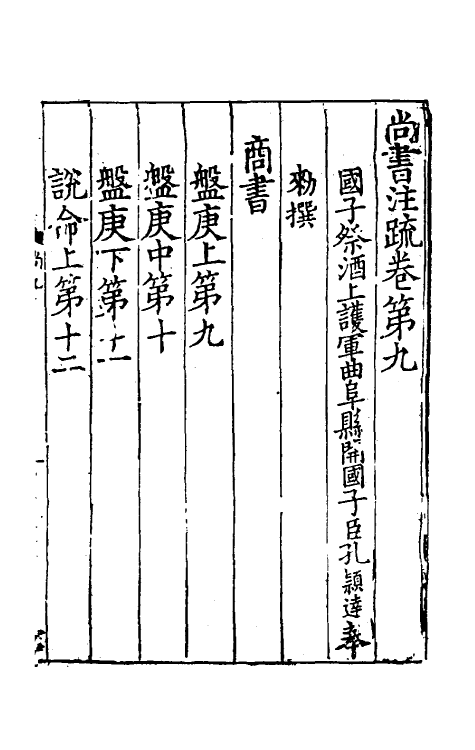 尚書注疏卷第九
國子祭酒上護軍曲阜縣開國子臣孔穎達奉
勑撰
商書
盤庚上第九
盤庚中第十
盤庚下第十一
說命上第十二